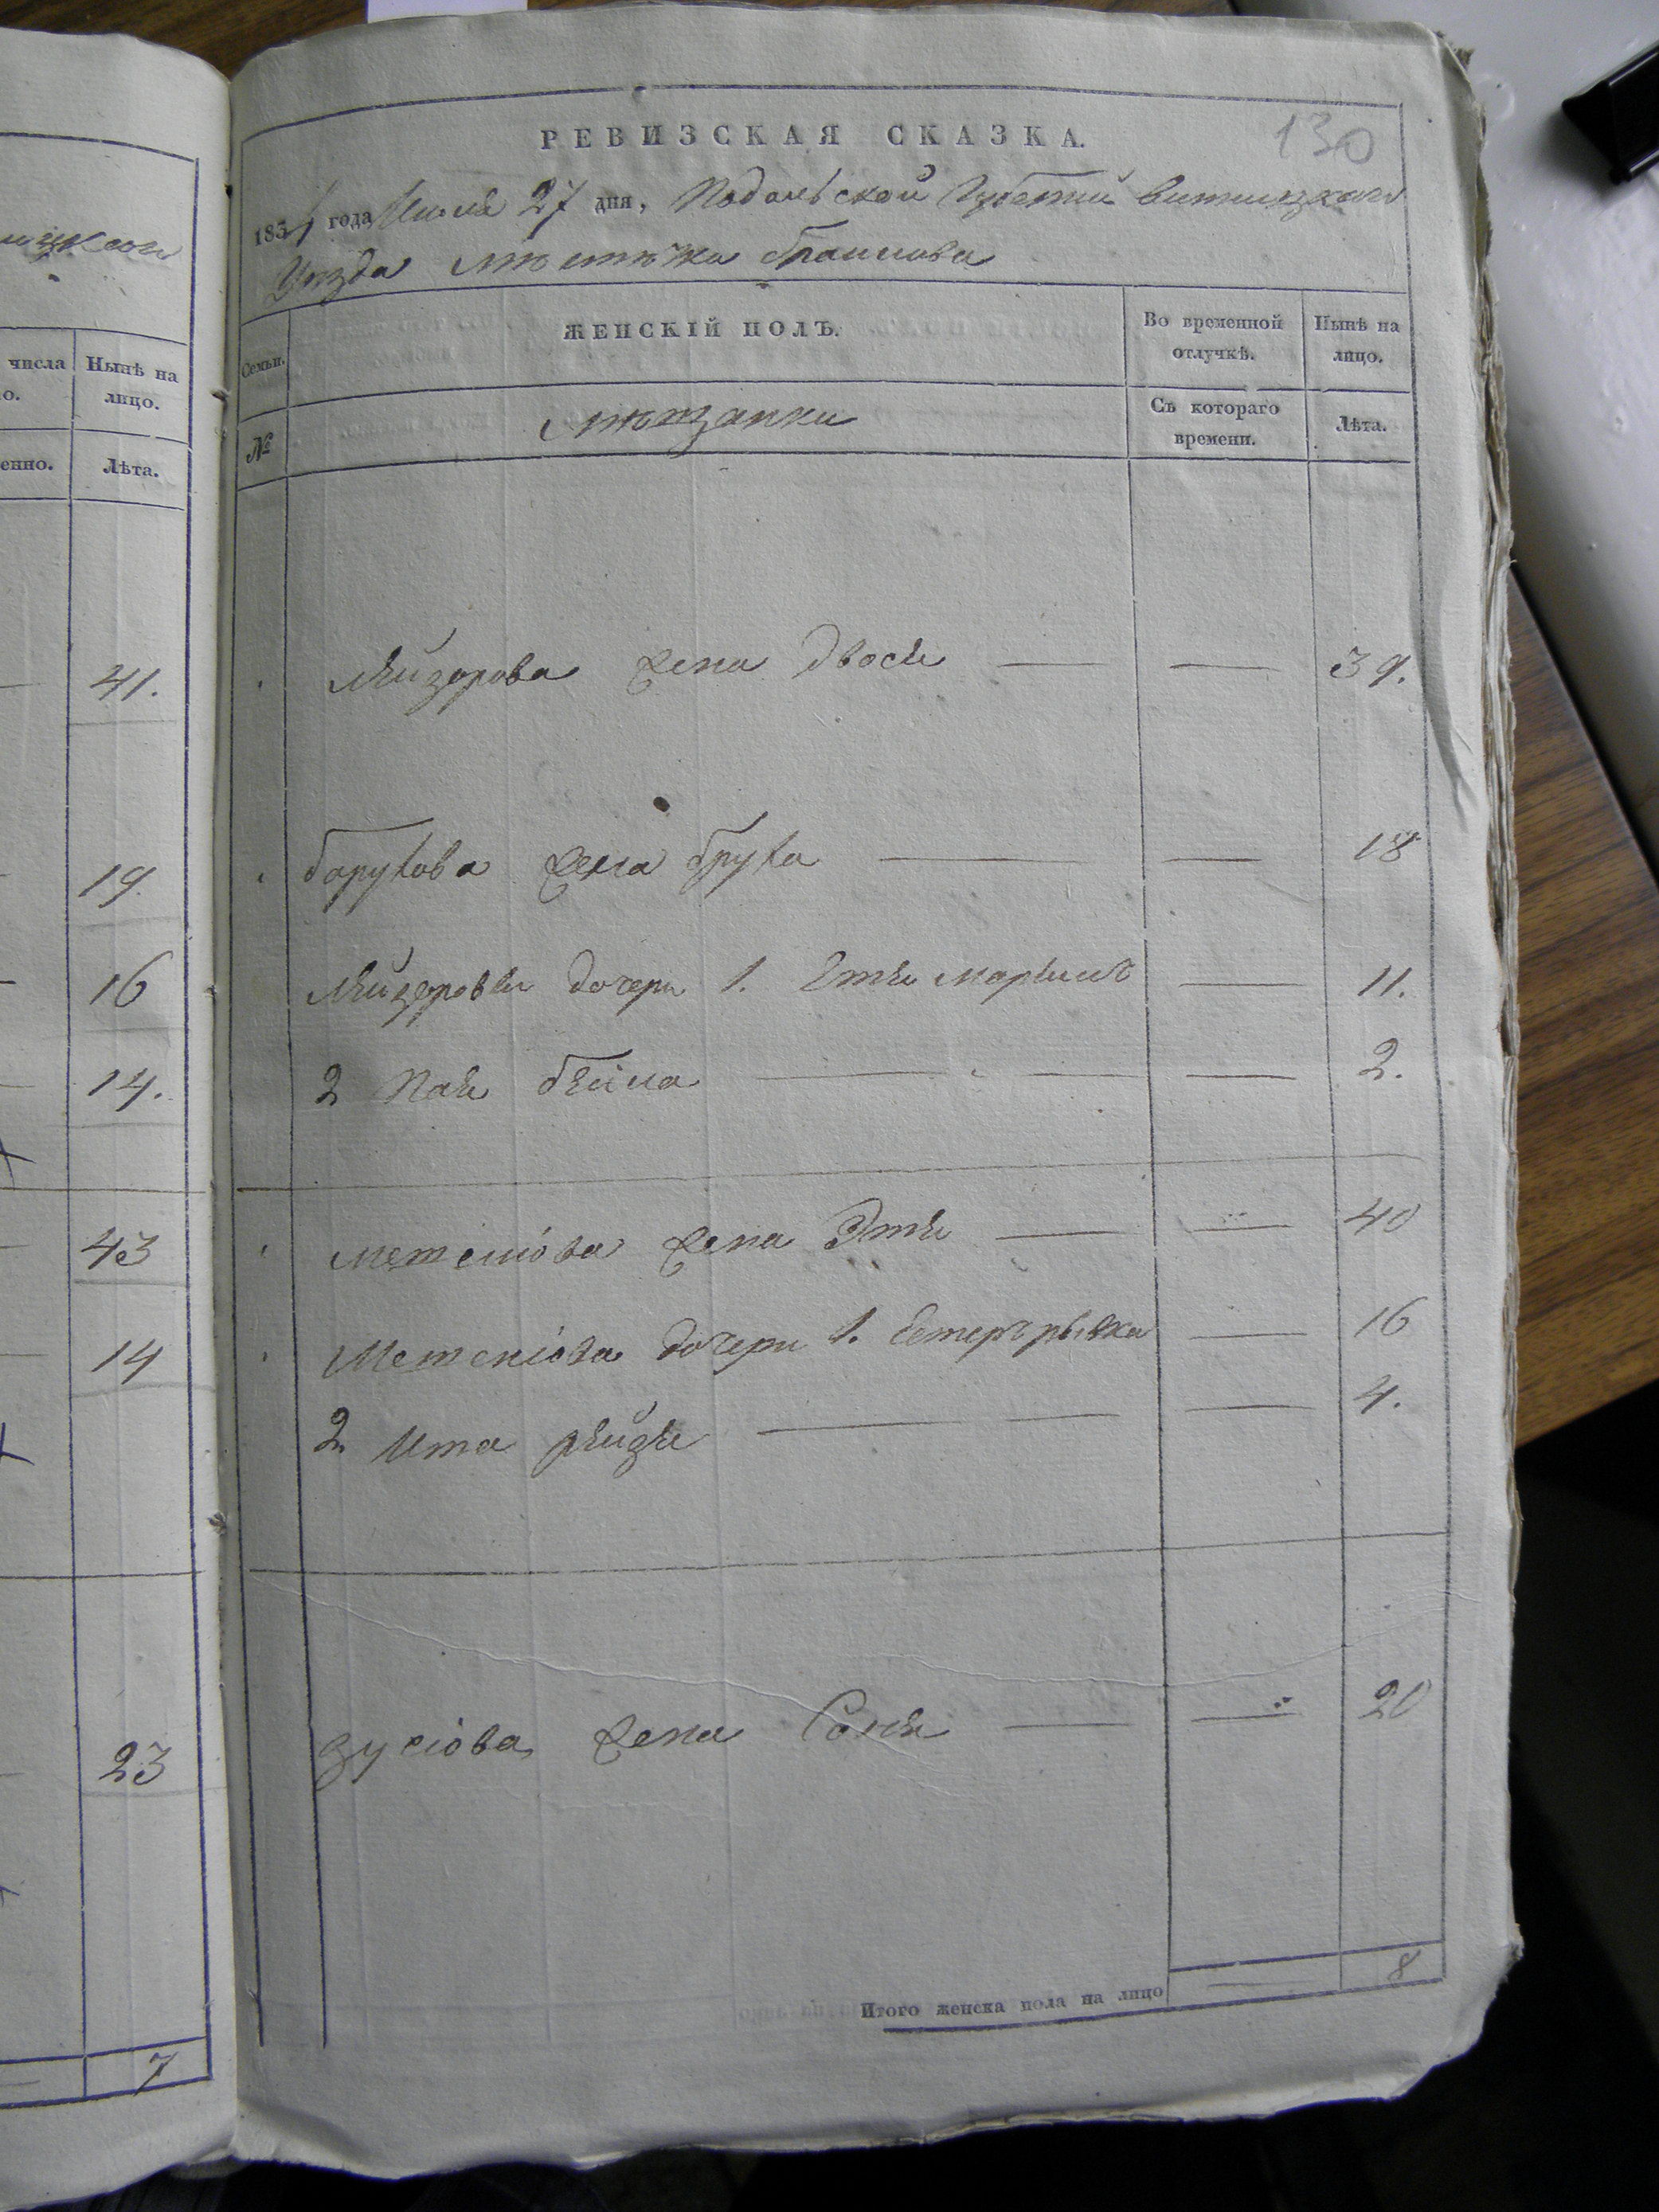 130
РЕВИЗСКАЯ СКАЗКА.
1834 года Июня 27 дня, Подольской Губернии Винницкаго
Уезда местечка Браилова
Семьи. ЖЕНСКІЙ ПОЛЪ. Во временной отлучкѣ. Нынѣ на лицо.
№ мѣщанки Съ котораго времени. Лѣта.
Лейзорова жена Двося 39.
Борухова жена Бруха 18
Лейзоровы дочери 1. Этя Маріимъ 11.
2 Пая Бейла 2.
жена Этя 40
дочери 1. Естеръ рывка 16
2 Ита рейзя 4.
Зусіова жена Соня 20
Итого женска пола на лицо 8
числа Нынѣ на лицо.
Лѣта.
41.
19.
16
14.
43
14
23
7